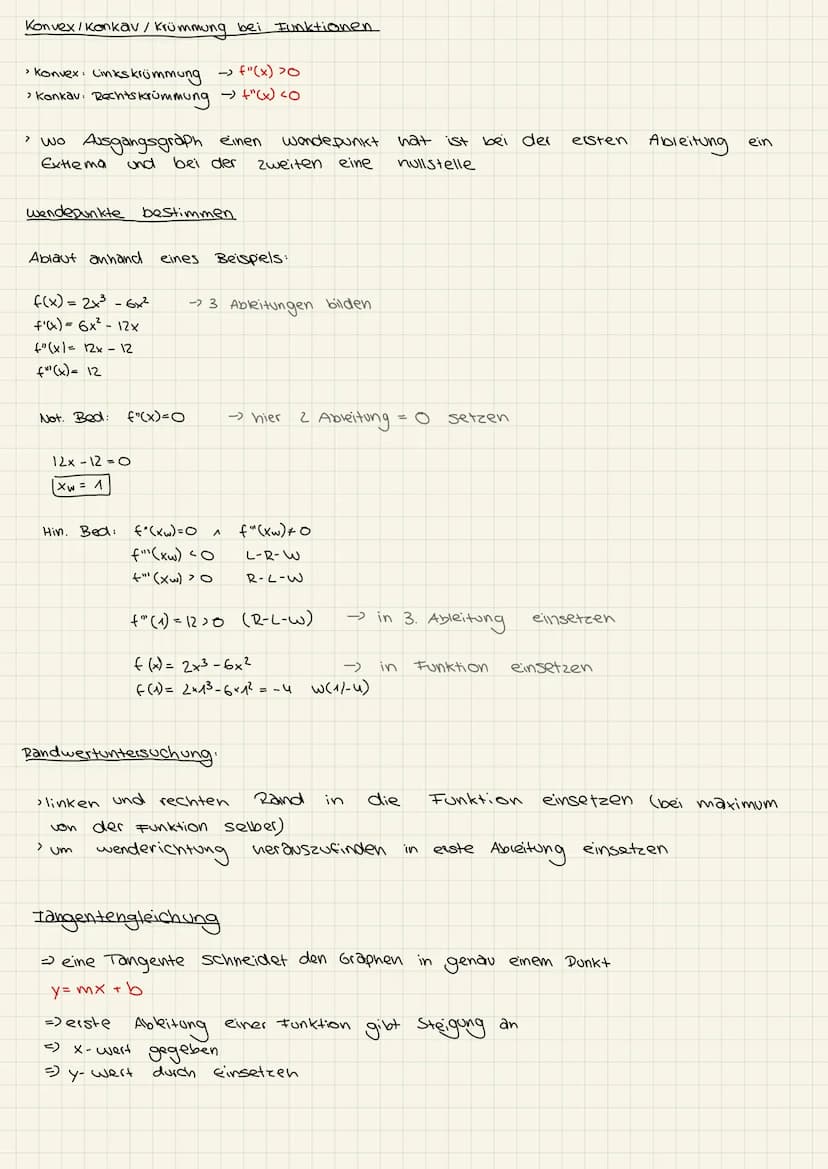 Konvex/Konkav/Krümmung bei Funktionen
› Konvex: Linkskrümmung → f"(x) >0
› Konkav: Rechtskrümmung → f"(x) <0
› wo Ausgangsgraph einen Wendepunkt hat ist bei der ersten Ableitung ein
Extrema und bei der zweiten eine nullstelle
Wendepunkte bestimmen
Ablauf anhand eines Beispiels:
f(x) = 2x³ - 6x² → 3 Ableitungen bilden
f'(x) = 6x² - 12x
f"(x) = 12x - 12
f'''(x) = 12
Not. Bed: f"(x)=0 → hier 2 Ableitung = 0 setzen
12x - 12 = 0
xw = 1
Hin. Bed: f"(xw)=0 ∧ f'''(xw)≠0
f'''(xw) <0 L-R-W
f'''(xw) >0 R-L-W
f'''(1) = 12 >0 (R-L-W) → in 3. Ableitung einsetzen
f(x) = 2x³ - 6x² → in Funktion einsetzen
f(1) = 2×1³ - 6×1² = -4 W(1/-4)
Randwertuntersuchung:
› linken und rechten Rand in die Funktion einsetzen (bei maximum
von der Funktion selber)
› um wenderichtung herauszufinden in erste Ableitung einsetzen
Tangentengleichung
⇒ eine Tangente schneidet den Graphen in genau einem Punkt
y = mx + b
⇒ erste Ableitung einer Funktion gibt Steigung an
⇒ x-wert gegeben
⇒ y-wert durch einsetzen